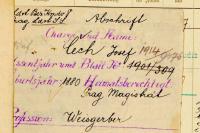 Abschrift
Charge und Name:
Čech Josef 1914
Assentjahr und Blatt Nr 1901/309
Geburtsjahr: 1880 Heimatsberechtigt:
Prag Magistrat
Profession: Weisgerber